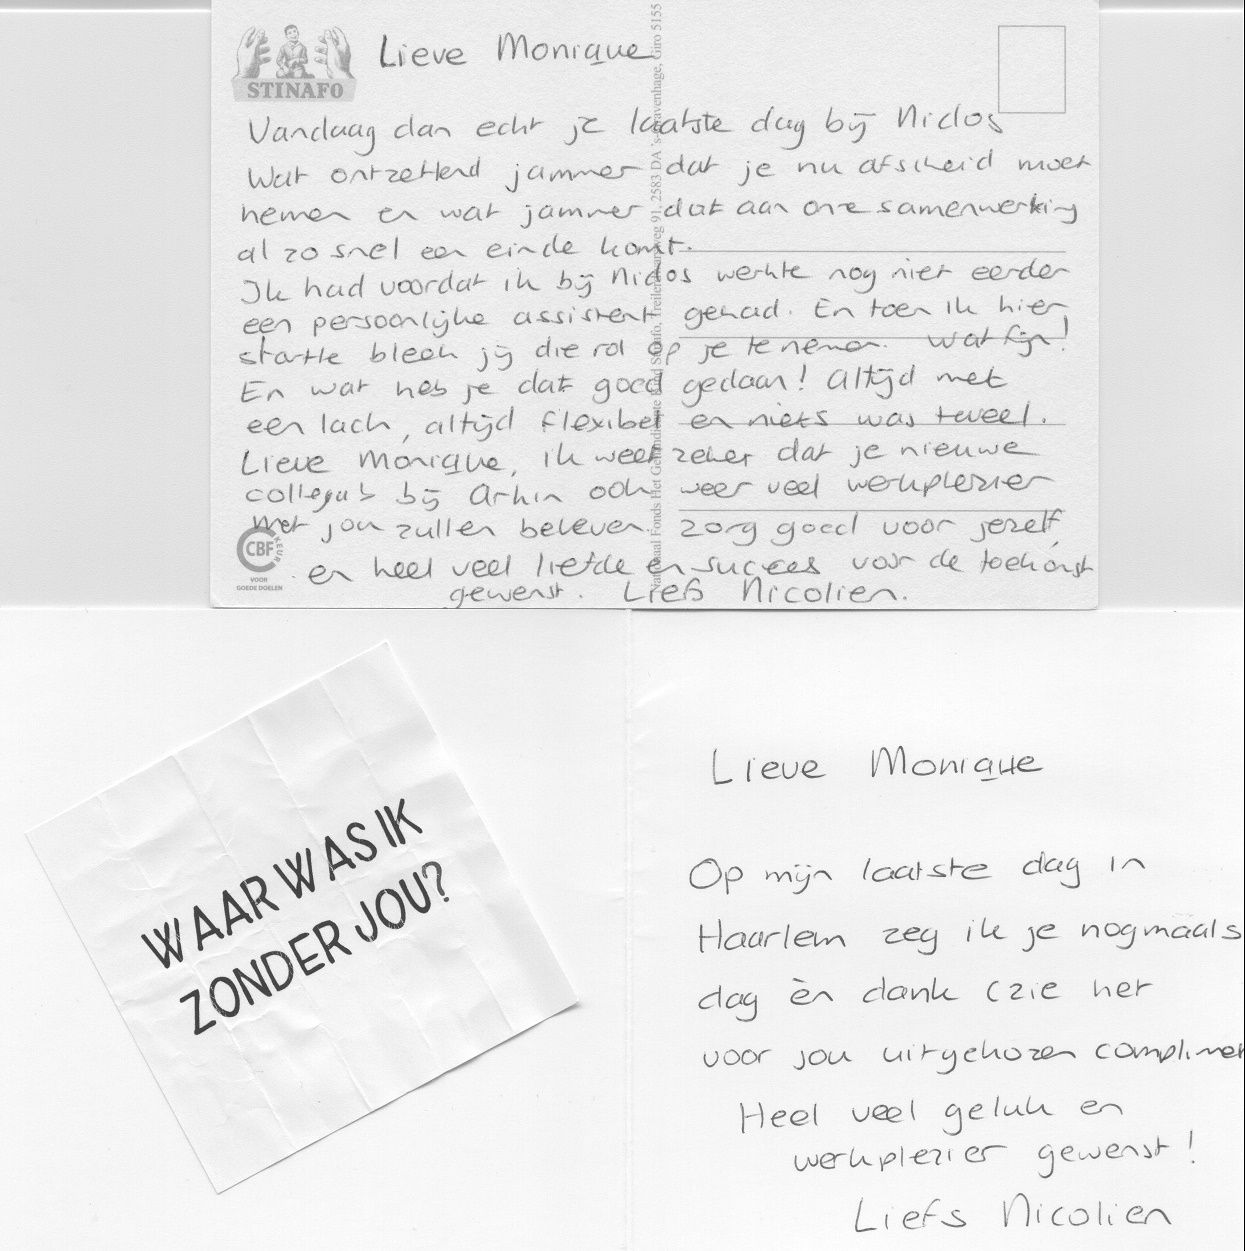 STINAFO
Lieve Monique
Vandaag dan echt je laatste dag bij Nidos
Wat ontzettend jammer dat je nu afscheid moet
nemen en wat jammer dat aan onze samenwerking
al zo snel een einde komt.
Ik had voordat ik bij Nidos werkte nog niet eerder
een persoonlijke assistent gehad. En toen ik hier
startte bleek jij die rol op je te nemen. Wat fijn!
En wat heb je dat goed gedaan! Altijd met
een lach, altijd flexibel en niets was teveel.
Lieve Monique, ik weet zeker dat je nieuwe
collega's bij Arkin ook weer veel werkplezier
met jou zullen beleven. Zorg goed voor jezelf,
en heel veel liefde en succes voor de toekomst
gewenst. Liefs Nicolien.
CBF
KEUR
VOOR
GOEDE DOELEN
Nationaal Fonds Het Gehandicapte Kind Stinafo, 91, 2583 DA 's-Gravenhage, Giro 5155
WAAR WAS IK
ZONDER JOU?
Lieve Monique
Op mijn laatste dag in
Haarlem zeg ik je nogmaals
dag èn dank (zie het
voor jou uitgekozen complimen
Heel veel geluk en
werkplezier gewenst!
Liefs Nicolien